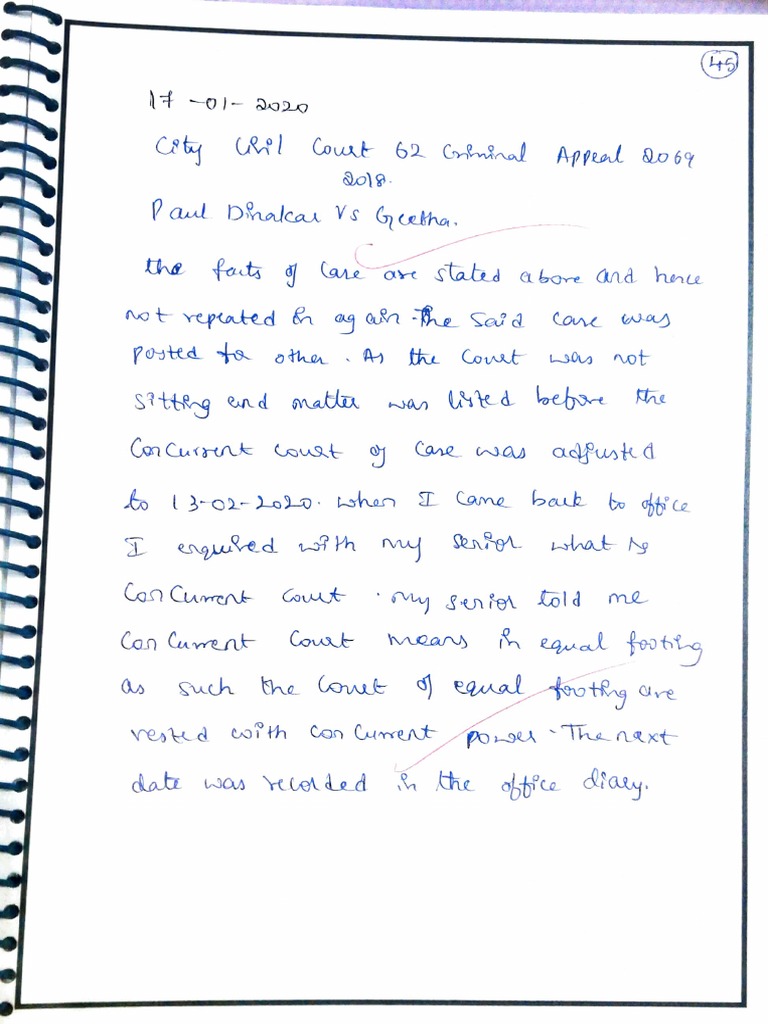 45
17-01-2020
City Civil Court 62 Criminal Appeal 2069
2018.
Paul Dinakar Vs Geetha.
the facts of case are stated above and hence
not repeated in again. The said case was
posted for other. As the Court was not
sitting and matter was listed before the
Concurrent court of case was adjusted
to 13-02-2020. when I came back to office
I enquired with my senior what is
Concurrent court. my senior told me
Concurrent Court means in equal footing
as such the Court of equal footing are
vested with concurrent power. The next
date was recorded in the office diary.